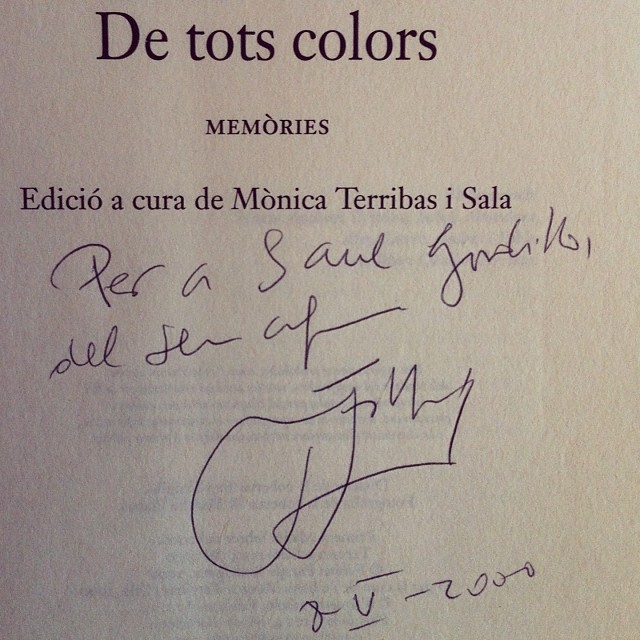 De tots colors
MEMÒRIES
Edició a cura de Mònica Terribas i Sala
Per a Saul Gordillo,
del seu
8-V-2000